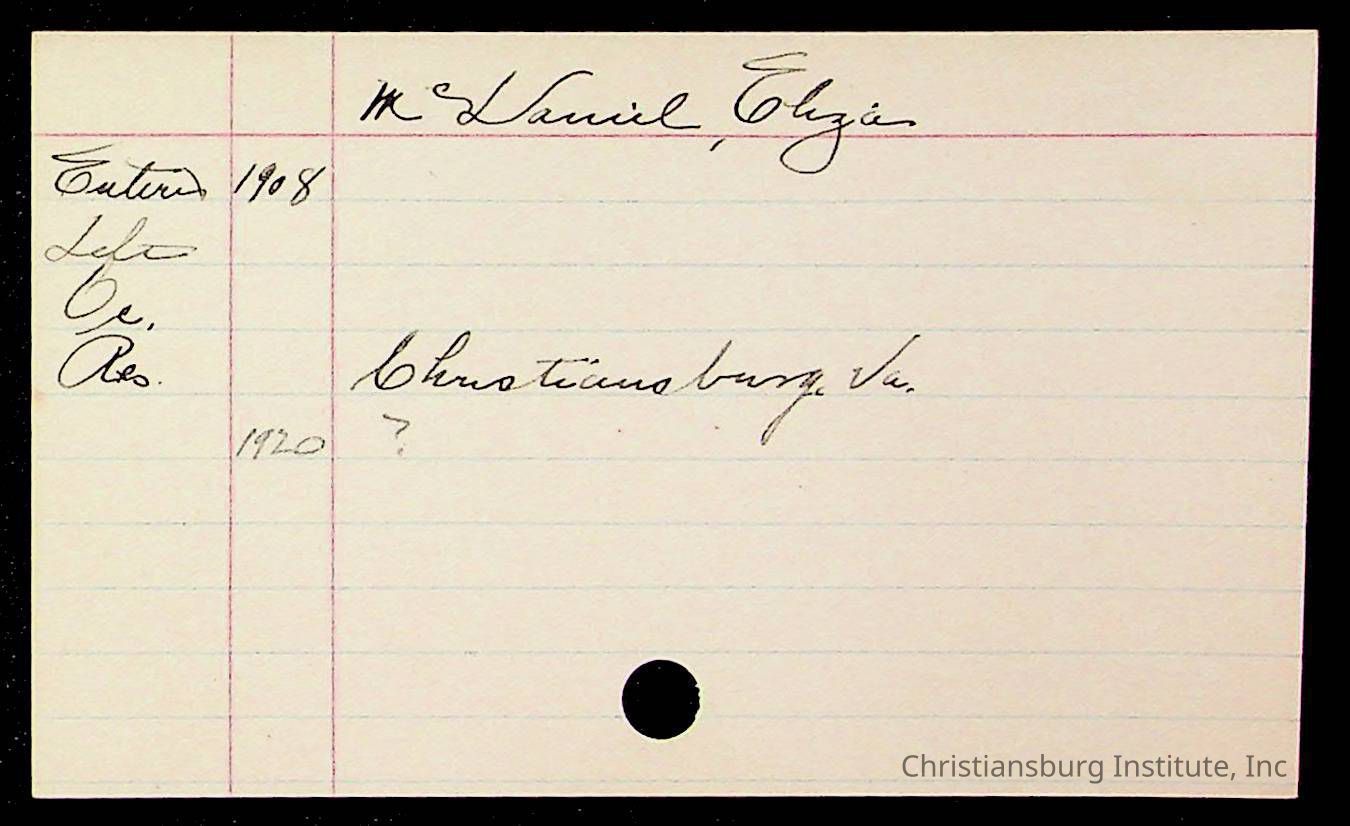 McDaniel, Eliza
Entered 1908
Left
Oc.
Res. Christiansburg, Va.
1920 ?
Christiansburg Institute, Inc